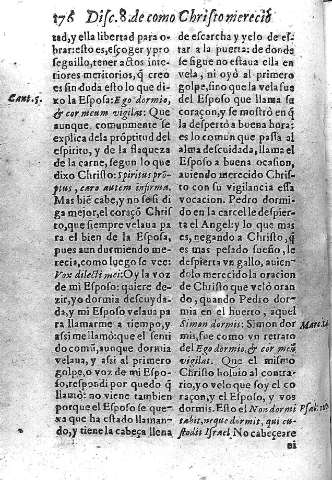 176 Disc. 8. de como Christo mereciò
tad, y ella libertad para o-
brar: esto es, escoger y pro
seguillo, tener actos inte-
riores meritorios, q̃ creo
es sin duda esto lo que di-
Cant. 5.
xo la Esposa: Ego dormio,
& cor meum vigilat: Que
aunque, comunmente se
explica dela prõptitud del
espiritu, y de la flaqueza
de la carne, segun lo que
dixo Christo: Spiritus prõ-
ptus, caro autem infirma.
Mas biẽ cabe, y no se si di
ga mejor, el coraçõ Chris
to, que siempre velaua pa
ra el bien de la Esposa,
pues aun durmiendo me-
recia, como luego se vee:
Vox dilecti mei: Oy la voz
de mi Esposo: quiere de-
zir, yo dormia descuyda-
da, y mi Esposo velaua pa
ra llamarme a tiempo, y
assi me llamò: que el senti
do comũ, aunque dormia
velaua, y assi al primero
golpe, o voz de mi Espo-
so, respondi por quedo q̃
llamò: no viene tambien
porque el Esposo se que-
xa que ha estado llaman-
do, y tiene la cabeça llena
de escarcha y yelo de es-
tar a la puerta: de donde
se sigue no estaua ella en
vela, ni oyò al primero
golpe, sino que la vela fue
del Esposo que llama su
coraçon, y se mostrò en q̃
la despertò a buena hora:
es lo comun que passa al
alma descuidada, llama el
Esposo a buena ocasion,
auiendo merecido Chris-
to con su vigilancia essa
vocacion. Pedro dormi-
do en la carcel le despier-
ta el Angel: y lo que mas
es, negando a Christo, q̃
es mas pesado sueño, le
despierta vn gallo, auien-
dolo merecido la oracion
de Christo que velò oran
do, quando Pedro dormia
en el huerto, aquel
Simon dormis: Simon dor
mis, sue como vn retrato
del Ego dormio, & cor meũ
vigilat. Que el mismo
Christo boluio al contra-
rio, yo velo que soy el co
raçon, y el Esposo, y vos
dormis. Esto el Non dormi
tabit, neque dormit, qui cu-
stodit Israel. No cabeçeare
ni